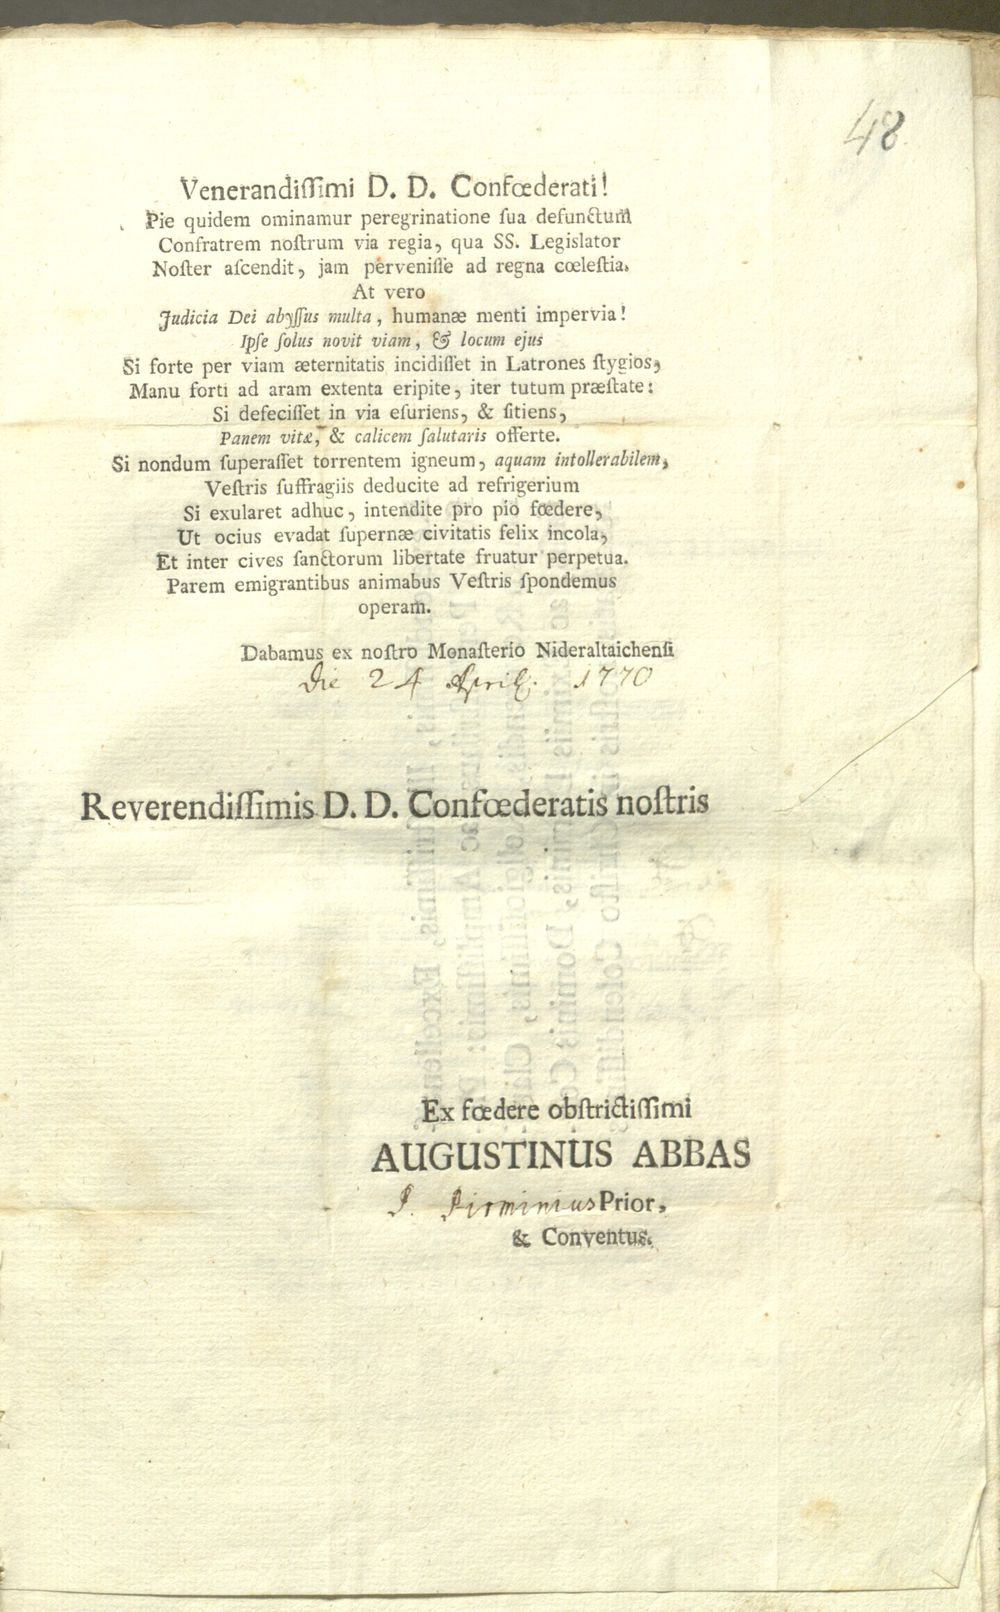 48
Venerandiſſimi D. D. Confœderati!
Pie quidem ominamur peregrinatione ſua defunctum
Confratrem noſtrum via regia, qua SS. Legislator
Noſter aſcendit, jam perveniſſe ad regna cœleſtia.
At vero
Judicia Dei abyſſus multa, humanæ menti impervia!
Ipſe ſolus novit viam, & locum ejus
Si forte per viam æternitatis incidiſſet in Latrones ſtygios,
Manu forti ad aram extenta eripite, iter tutum præſtate:
Si defeciſſet in via eſuriens, & ſitiens,
Panem vitæ, & calicem ſalutaris offerte.
Si nondum ſuperaſſet torrentem igneum, aquam intollerabilem,
Veſtris ſuffragiis deducite ad refrigerium
Si exularet adhuc, intendite pro pio fœdere,
Ut ocius evadat ſupernæ civitatis felix incola,
Et inter cives ſanctorum libertate fruatur perpetua.
Parem emigrantibus animabus Veſtris ſpondemus
operam.
Dabamus ex noſtro Monaſterio Nideraltaichenſi
Die 24 April: 1770
Reverendiſſimis D. D. Confœderatis noſtris
Ex fœdere obſtrictiſſimi
AUGUSTINUS ABBAS
P. Pirminius Prior,
& Conventus.